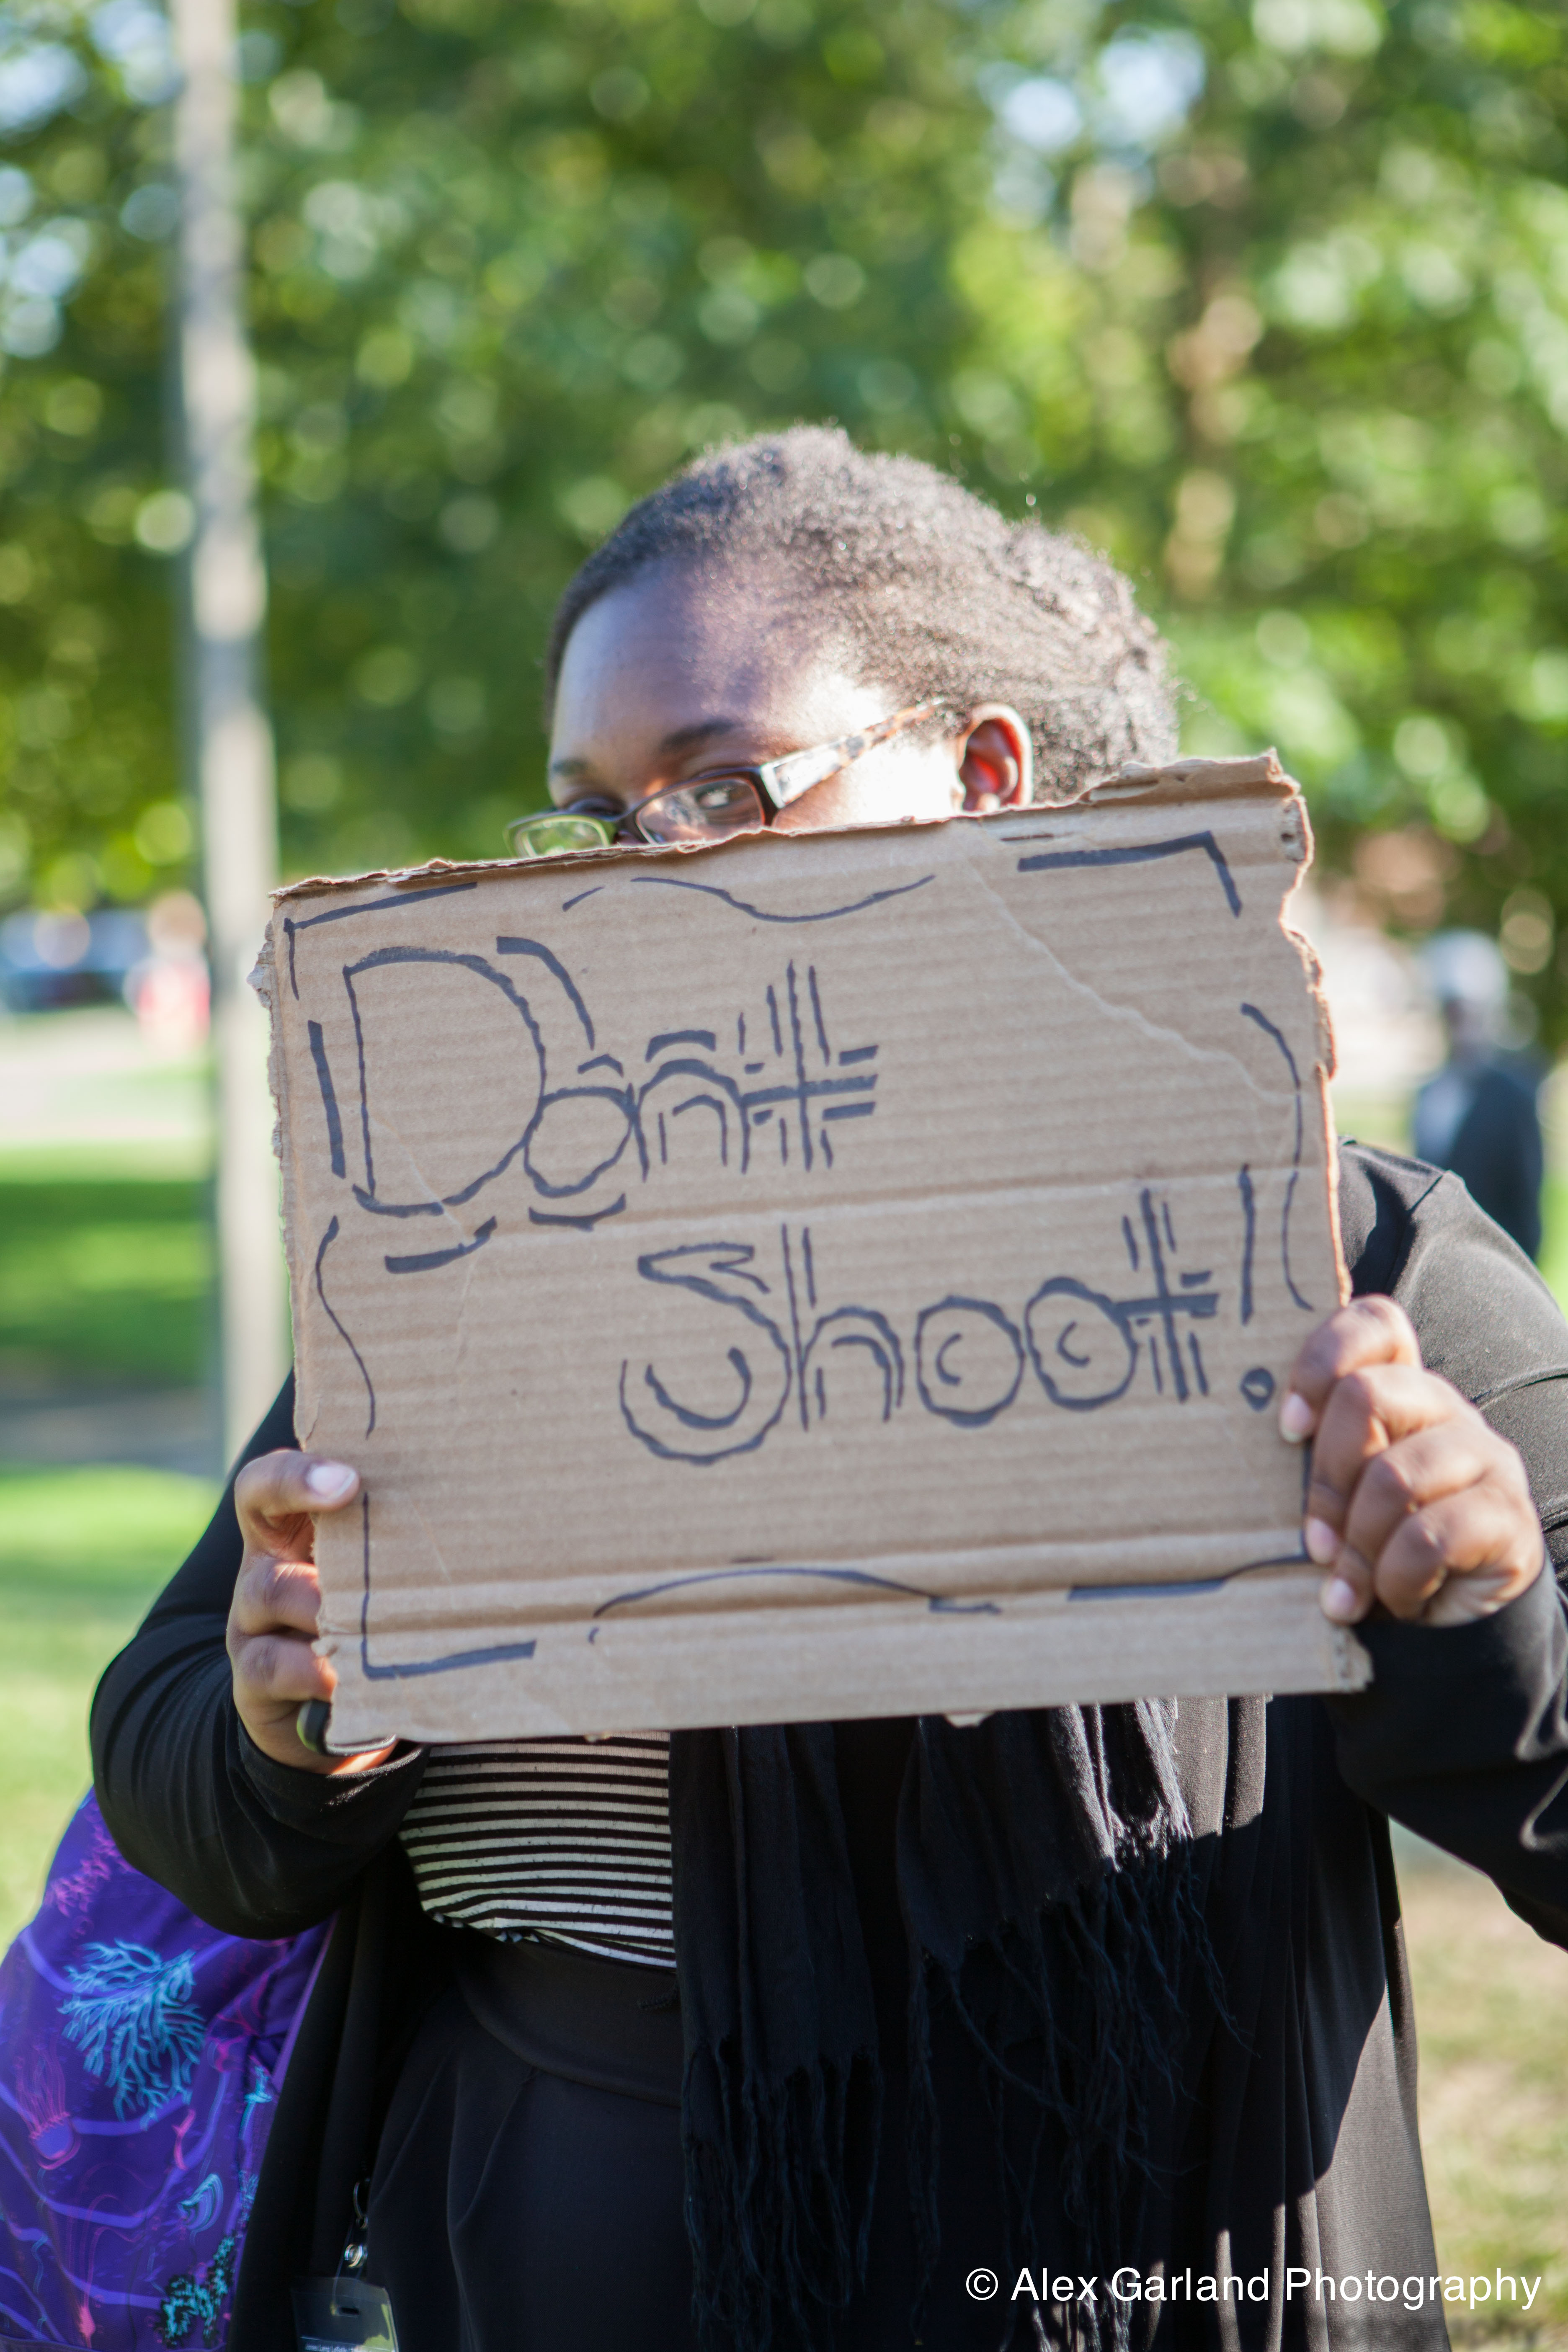 Don't
Shoot!
© Alex Garland Photography